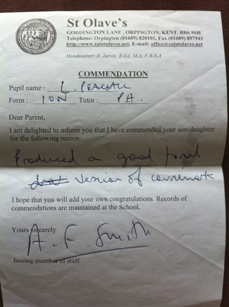 St Olave's
GODDINGTON LANE, ORPINGTON, KENT. BR6 9SH
Telephone: Orpington (01689) 820101, Fax (01689) 897943
http://www.saintolaves.net, E-mail: office@saintolaves.net
Headmaster: A. Jarvis, B.Ed, M.A, F.R.S.A
COMMENDATION
Pupil name : L. PEARSALL
Form : ION Tutor : PH.
Dear Parent,
I am delighted to inform you that I have commended your son/daughter
for the following reason:
Produced a good final
version of coursework
I hope that you will add your own congratulations. Records of
commendations are maintained at the School.
Yours sincerely
A. F. Smith
Issuing member of staff